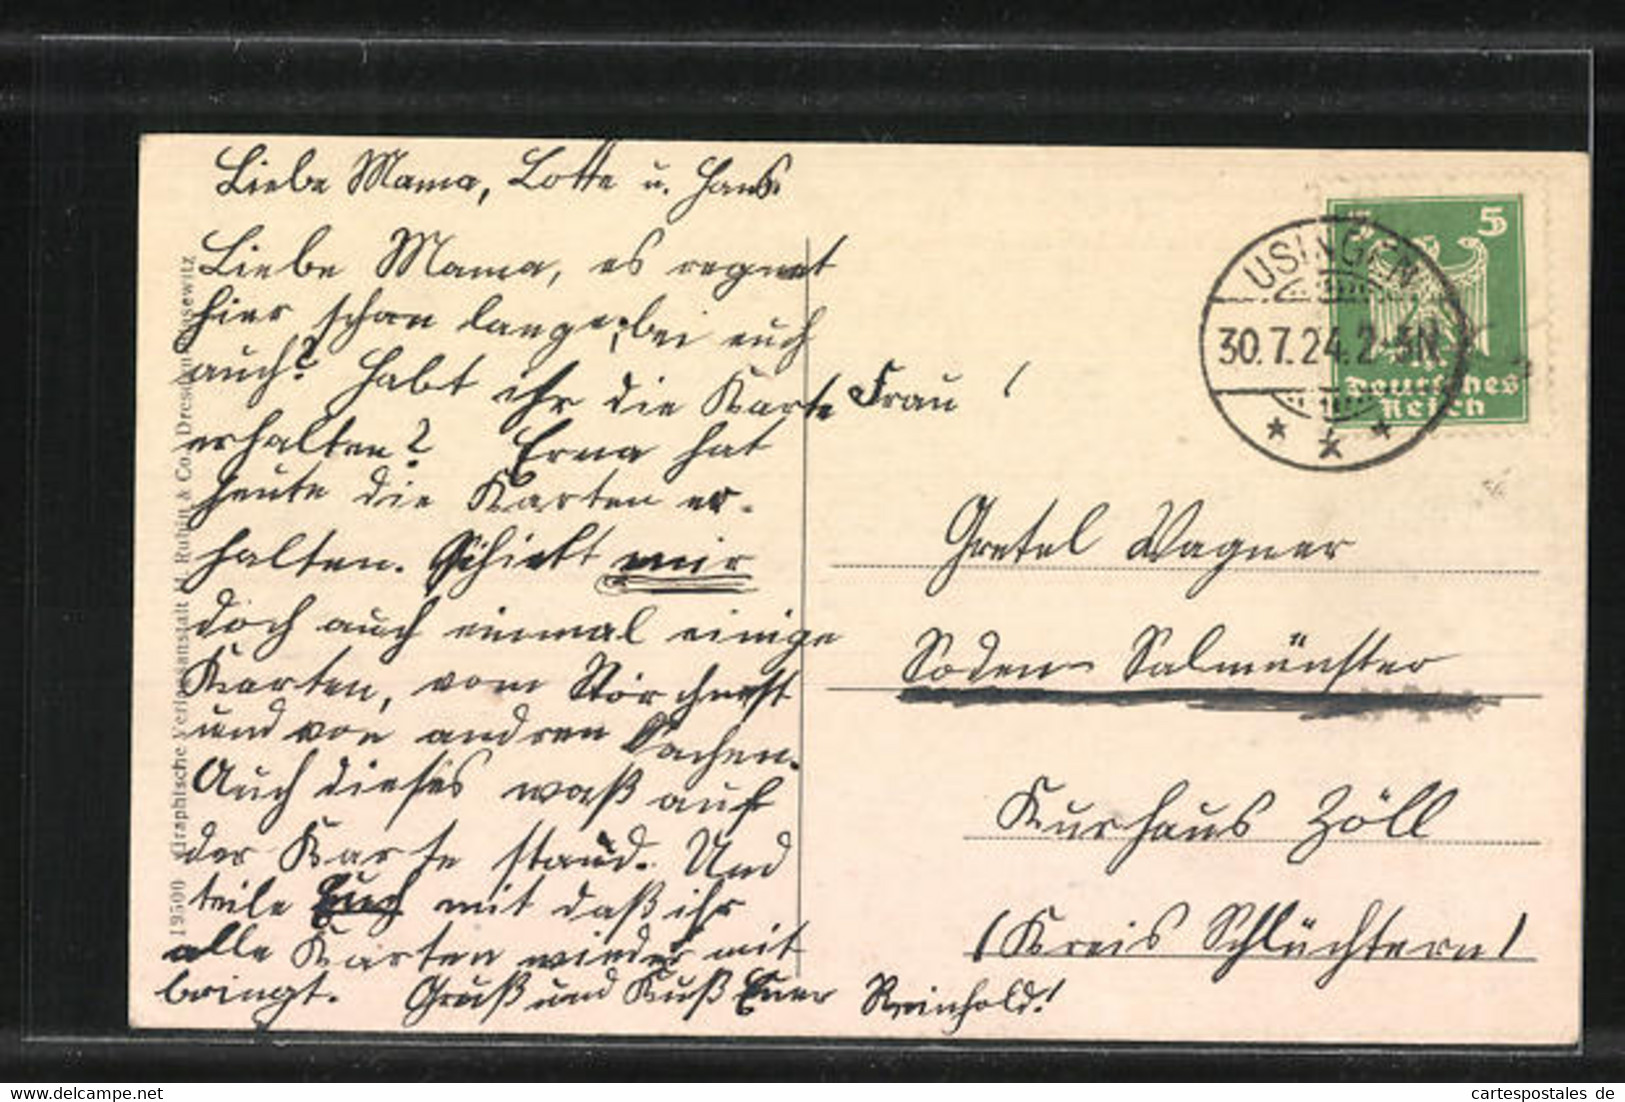 Liebe Mama, Lotte u. Hans.
Liebe Mama, es regnet
hier schon lange, bei euch
auch? Habt ihr die Karte
erhalten? Erna hat
heute die Karten er-
halten. Schickt mir
doch auch einmal einige
Karten, vom
und von andren Sachen.
Auch dieses waß auf
der Karte stand. Und
teile Euch mit daß ihr
alle Karten wieder mit
bringt. Gruß und Kuß Euer Reinhold!
Frau !
Gretel Wagner
Soden-Salmünster
Kurhaus Zöll
(Kreis Schlüchtern)
USINGEN
30.7.24.2-3N
5
Deutsches
Reich
19500 Graphische Verlagsanstalt H. Rubin & Co., Dresden-Blasewitz
www.delcampe.net
cartespostales de